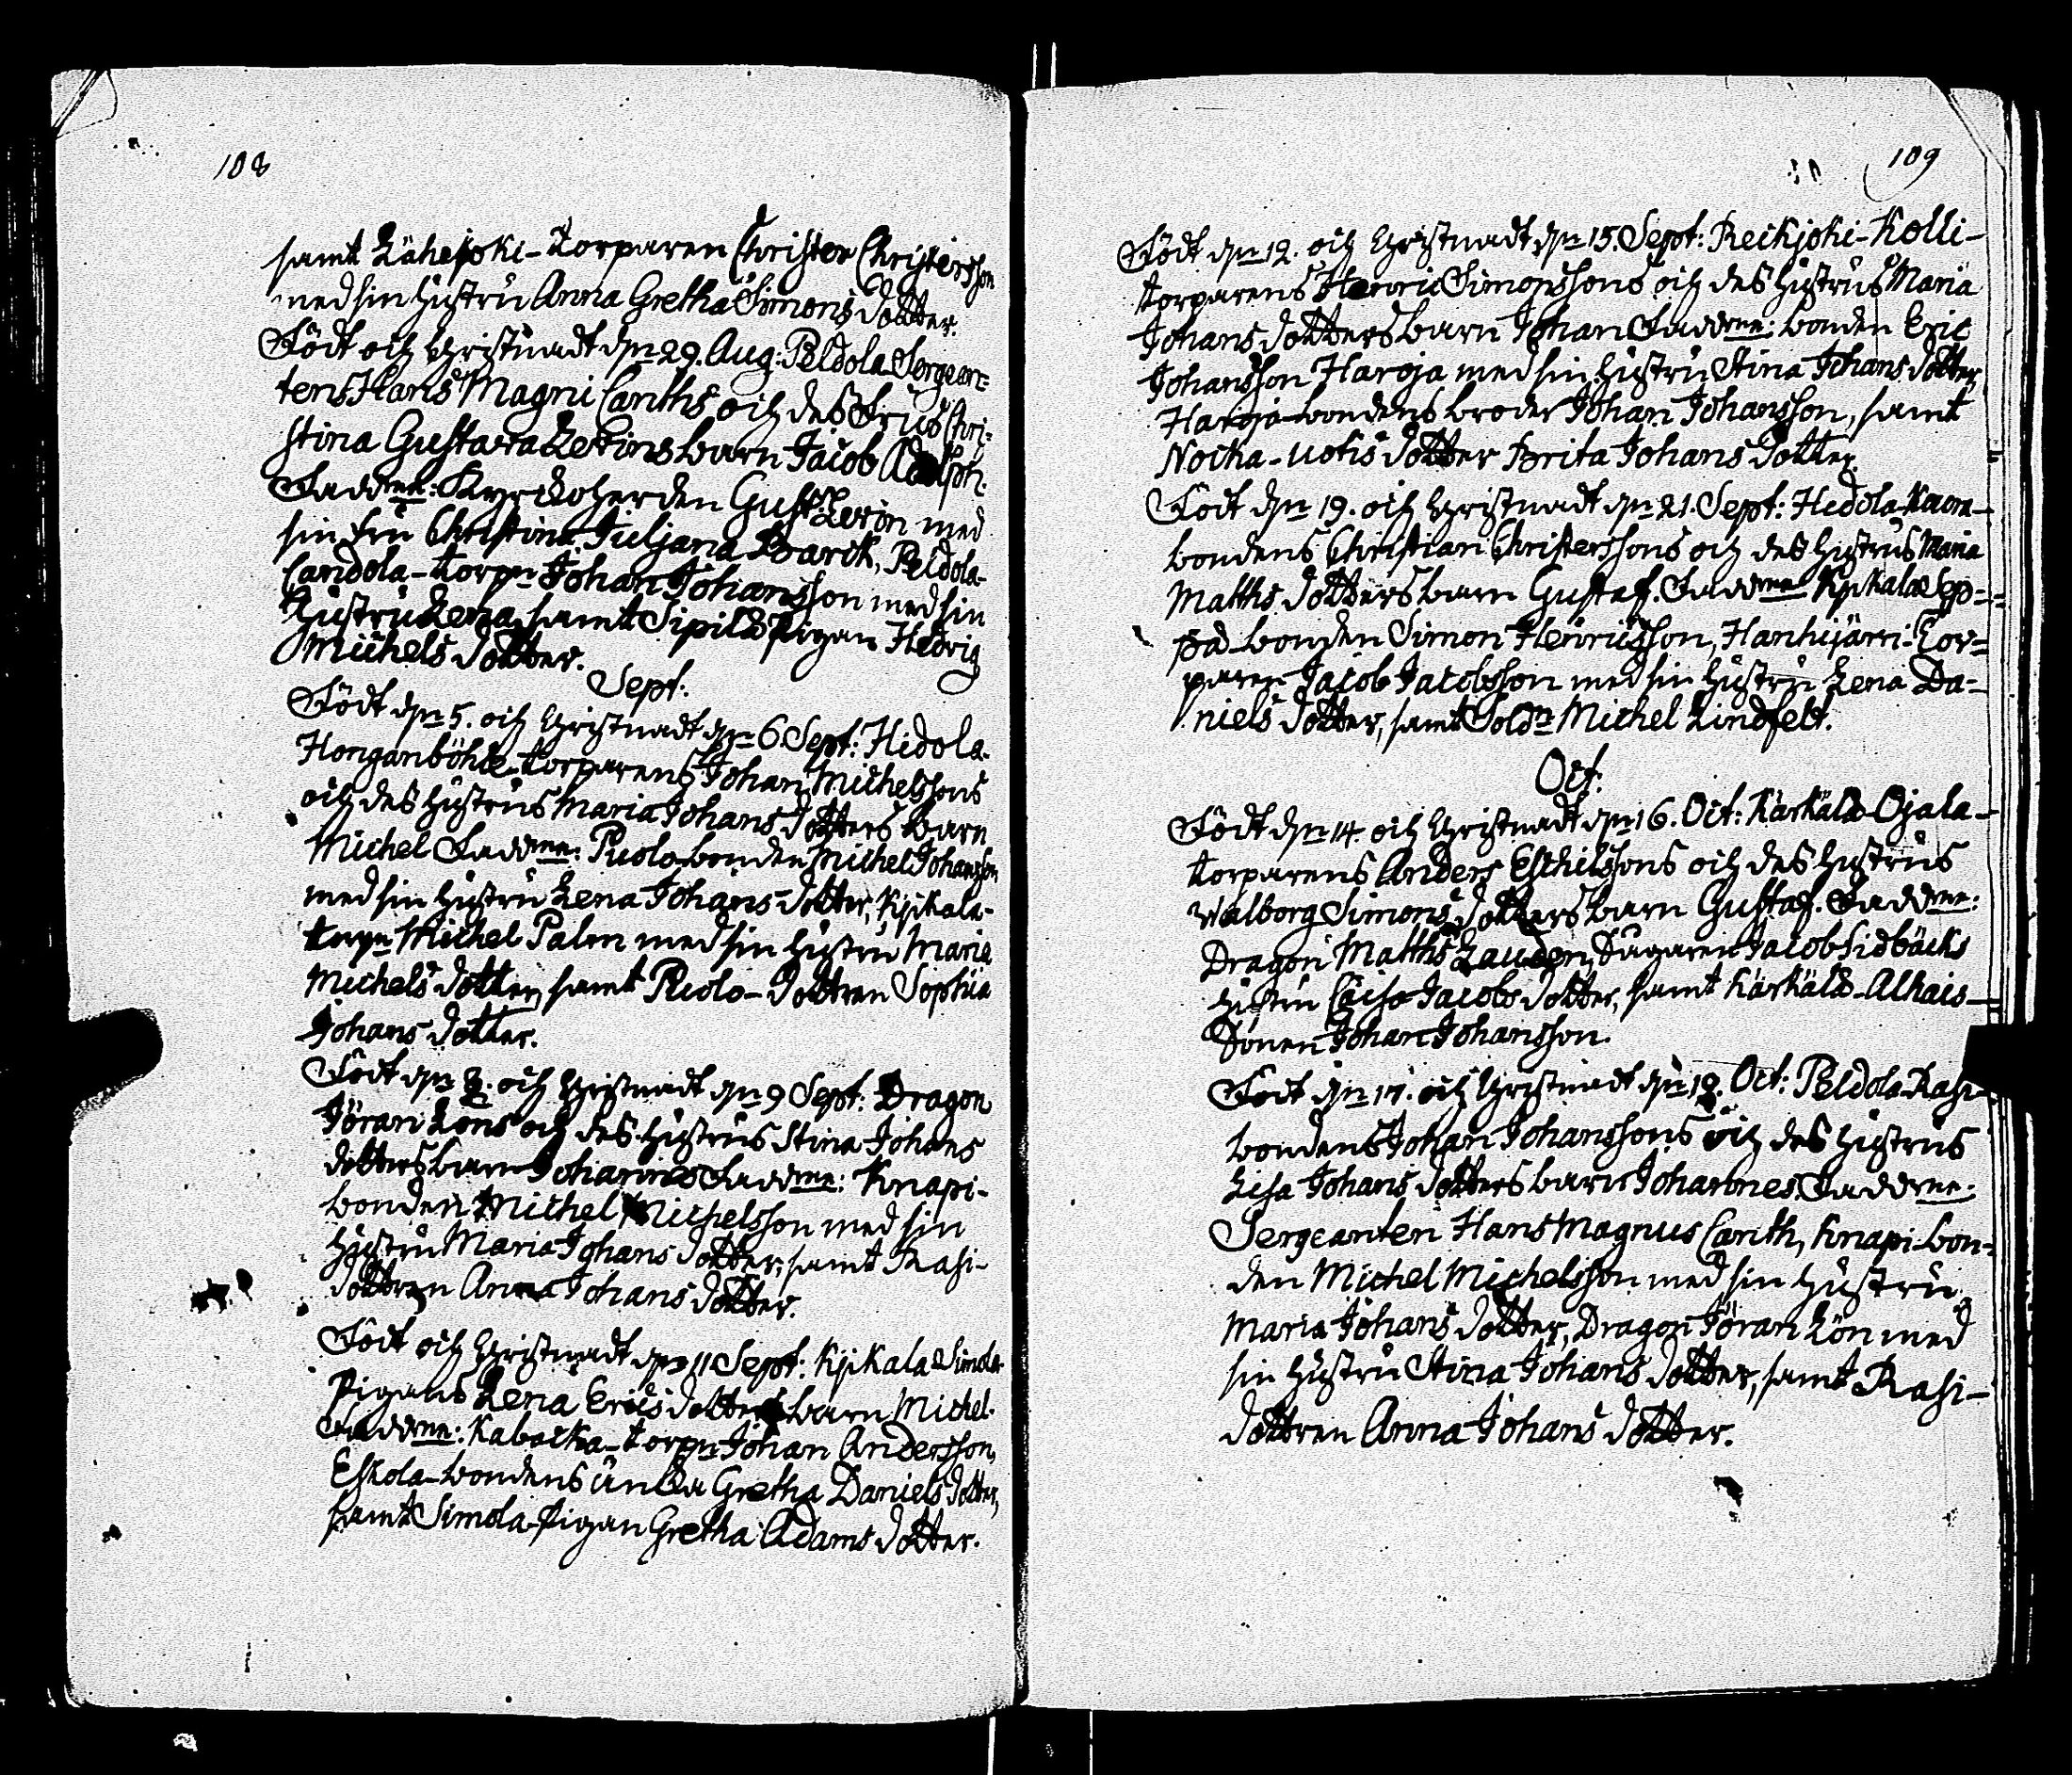 108
samt Lähejoki-torparen Christer Christersson
med sin hustru Anna Gretha Simons dotter.
Födt och Christnadt den 29. Aug: Peldola Sergean-
tens Hans Magni Canths och des Frus Chri-
stina Gustava Levins barn Jacob Adolph.
Faddrne: Kyrckoherden Gust: Levin med
sin Fru Christina Juljana Barck, Peldola-
Candola-torpn Johan Johansson med sin
hustru Lena, samt Sipilä Pigan Hedvig
Michels dotter.
Sept:
Födt den 5. och Christnadt den 6. Sept: Hidola-
Honganböhle-torparens Johan Michelssons
och des hustrus Maria Johans dotters barn
Michel Faddrne: Puolo-bonden Michel Johansson
med sin hustru Lena Johans-dotter, Kyikala-
torpn Michel Palm med sin hustru Maria
Michels dotter, samt Puolo-dottren Sophia
Johans dotter.
Födt den 8. och Christnadt den 9 Sept: Dragon
Jöran Löns och des hustrus Stina Johans
dotters barn Johannes Faddrne: Knapi-
bonden Michel Michelsson med sin
hustru Maria Johans dotter, samt Rasi-
dottren Anna Johans dotter.
Födt och Christnadt den 11 Sept: Kyikala Simola-
Pigans Lena Erics dotters barn Michel.
Faddrne: Kabacka-torpn Johan Andersson,
Eskola-bondens änka Gretha Daniels dotter,
samt Simola-Pigan Gretha Adams dotter.
109
Födt den 12. och Christnadt den 15. Sept: Reckjoki-Kolli-
torparens Henric Simonssons och des hustrus Maria
Johans dotters barn Johan Faddrne: bonden Eric
Johansson Haroja med sin hustru Stina Johans dotter
Haroja-bondens broder Johan Johansson, samt
Nocka-uotis dotter Brita Johans dotter.
Födt den 19. och Christnadt den 21. Sept: Hidola-Kaura-
bondens Christian Christerssons och des hustrus Maria
Matths dotters barn Gustaf. Faddrne Kyikala Sep-
pä-bonden Simon Henricsson, Hanhijärvi-Tor-
paren Jacob Jacobsson med sin hustru Lena Da-
niels dotter, samt Soldn Michel Lindfelt.
Oct:
Födt den 14. och Christnadt den 16. Oct: Karkälä-Ojala-
torparens Anders Eschilssons och des hustrus
Walborg Simons dotters barn Gustaf. Faddrne:
Dragon Matths Lauden, Sågaren Jacob Sidbäcks
hustru Caisa Jacobs dotter, samt Karkälä-Alhais-
Sonen Johan Johansson.
Födt den 17. och Christnadt den 18. Oct: Peldola-Rasi-
bondens Johan Johanssons och des hustrus
Lisa Johans dotters barn Johannes Faddrne:
Sergeanten Hans Magnus Canth, Knapi-bon-
den Michel Michelsson med sin hustru
Maria Johans dotter, Dragon Jöran Lön med
sin hustru Stina Johans dotter, samt Rasi-
dottren Anna Johans dotter.